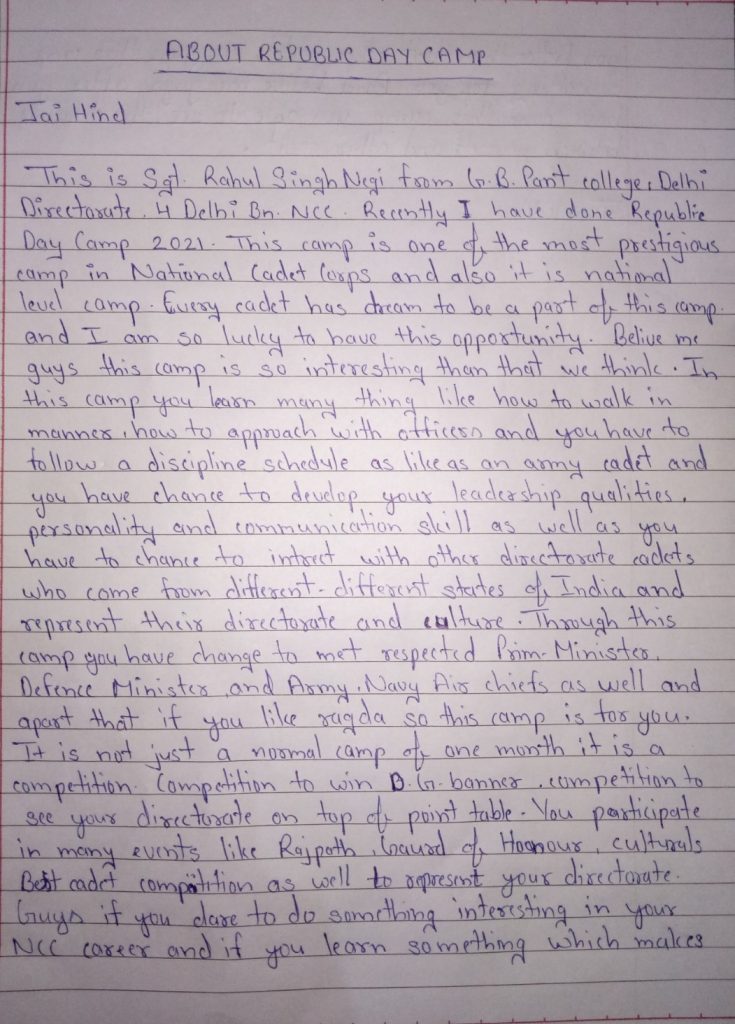 ABOUT REPUBLIC DAY CAMP
Jai Hind
This is Sgt. Rahul Singh Negi from G.B. Pant college, Delhi
Directorate, 4 Delhi Bn. NCC. Recently I have done Republic
Day Camp 2021. This camp is one of the most prestigious
camp in National Cadet Corps and also it is national
level camp. Every cadet has dream to be a part of this camp.
and I am so lucky to have this opportunity. Belive me
guys this camp is so interesting than that we think. In
this camp you learn many thing like how to walk in
manner, how to approach with officers and you have to
follow a discipline schedule as like as an army cadet and
you have chance to develop your leadership qualities,
personality and communication skill as well as you
have to chance to intrect with other directorate cadets
who come from different-different states of India and
represent their directorate and culture. Through this
camp you have change to met respected Prim-Minister,
Defence Minister, and Army, Navy Air chiefs as well and
apart that if you like ragda so this camp is for you.
It is not just a normal camp of one month it is a
competition. Competition to win D.G. banner, competition to
see your directorate on top of point table. You participate
in many events like Rajpath, Gaurd of Hoonour, culturals
Best cadet compitition as well to represent your directorate.
Guys if you dare to do something interesting in your
NCC career and if you learn something which makes